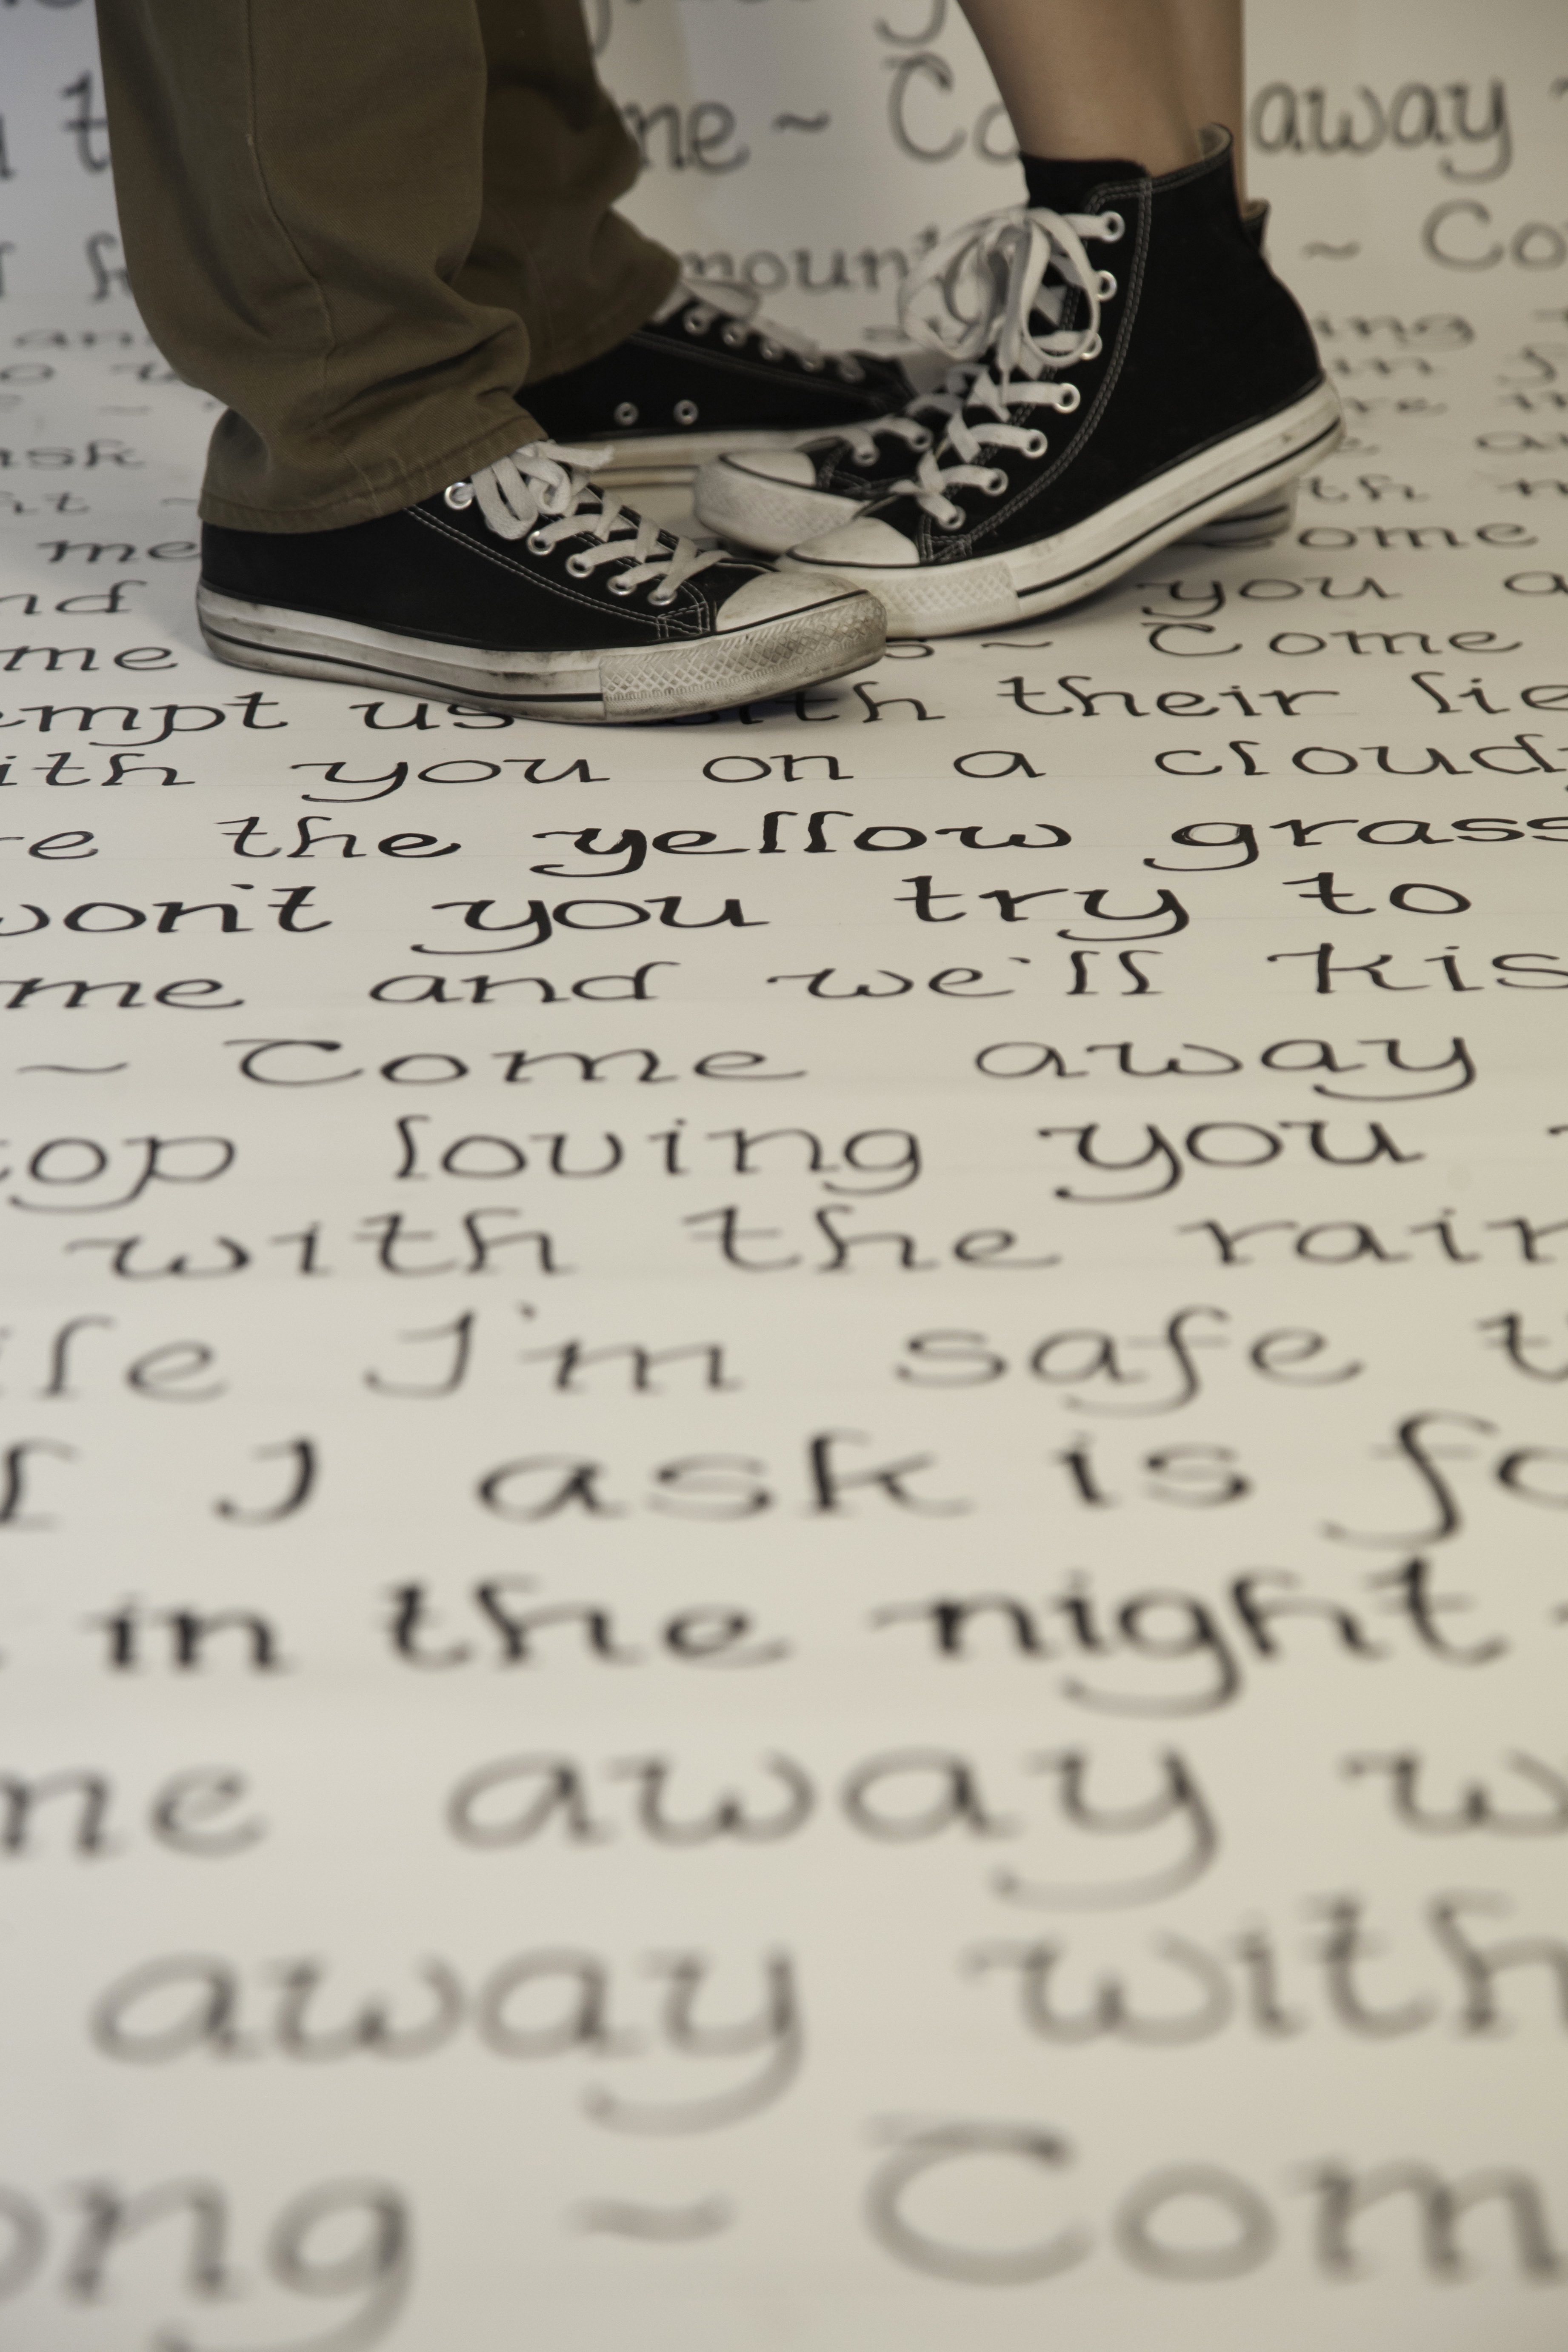 me ~ Co away
mount ~ Co
ing
ask
me ome
nd you a
me s ~ Come
empt us with their lie
ith you on a cloudy
re the yellow grass
won't you try to
me and we'll kis
~ Come away
top loving you
with the rain
ile I'm safe t
l I ask is fo
in the night
me away w
away with
ong ~ Com